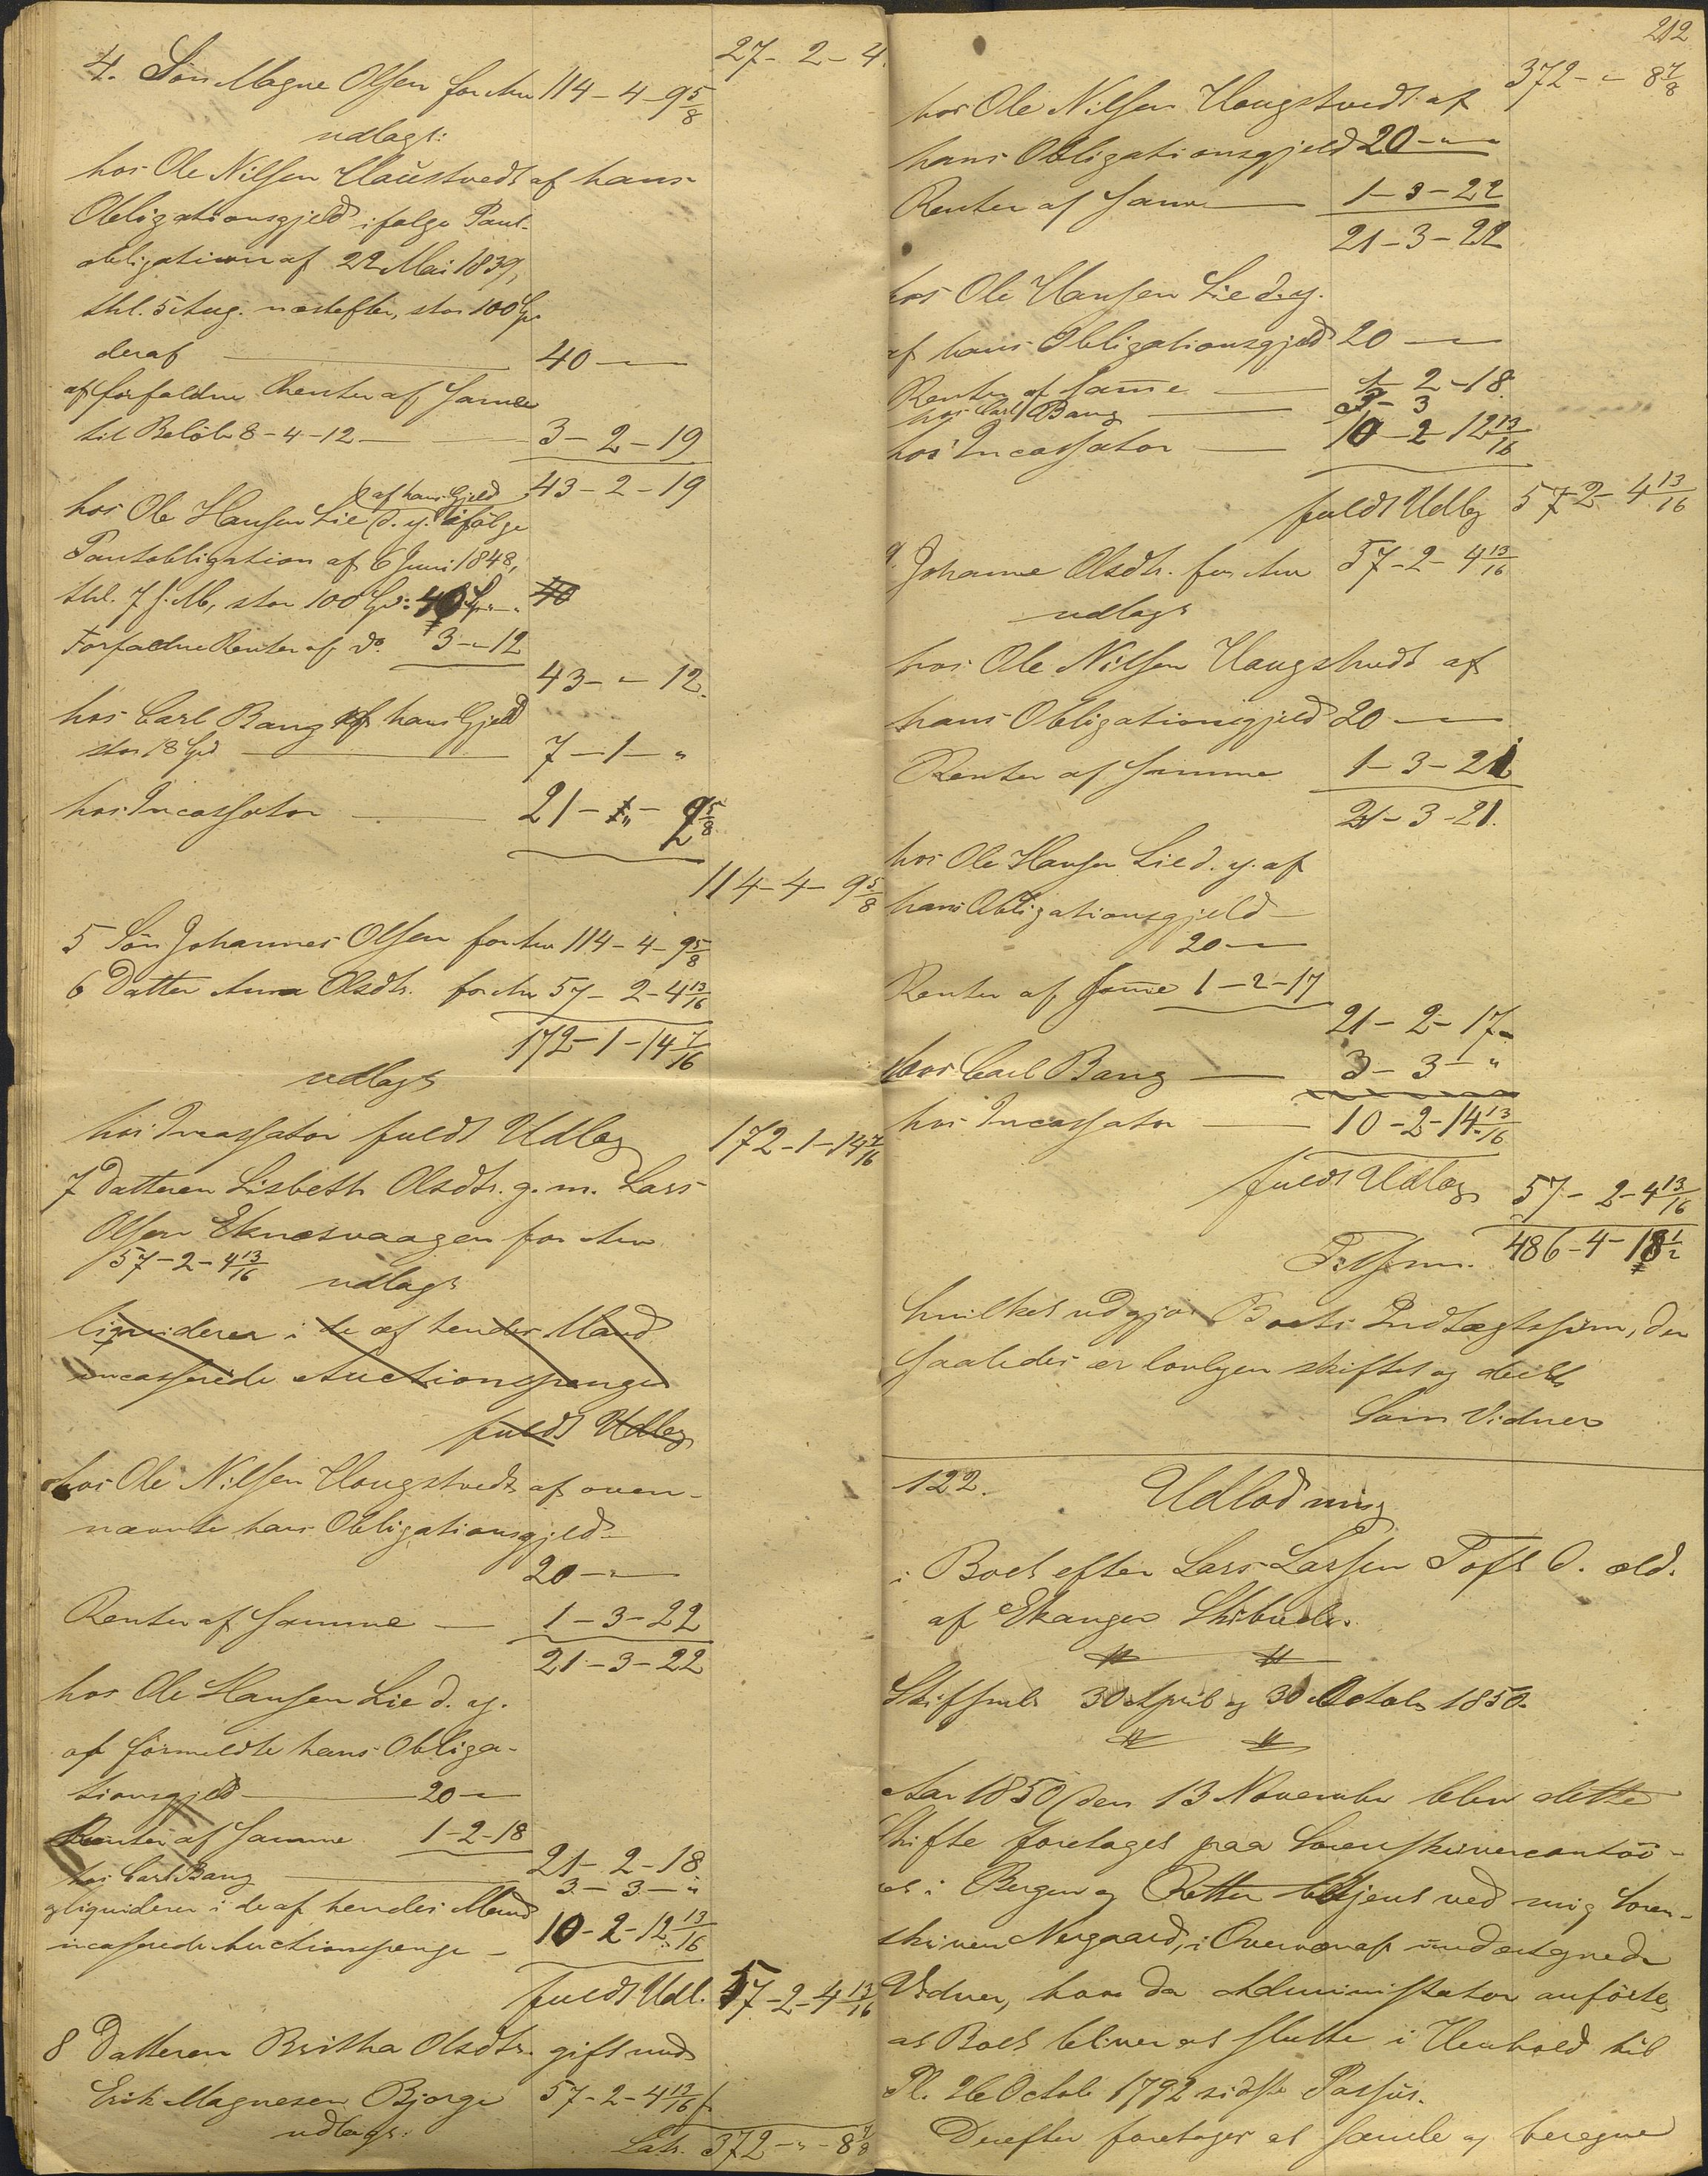 27 - 2 - 4.
4. Søn Magne Olsen for Arv 114 - 4 - 9 5/8
udlagt:
hos Ole Nilsen Haustvedt af hans
Obligationsgjeld ifølge Pant-
obligation af 22 Mai 1839,
thl. 5 Aug. næstefter, stor 100 Spd
deraf 40 - -
af forfaldne Renter af Samme
til Beløb 8-4-12 - 3 - 2 - 19
43 - 2 - 19
hos Ole Hansen Lie d. y. af hans Gjeld ifølge
Pantobligation af 6 Juni 1848,
thl. 7 s. M., stor 100 Spd: 40 Spd. 40
Forfaldne Renter af do. 3 - " 12
43 - " - 12.
hos Carl Bang af hans Gjeld
stor 18 Spd 7 - 1 - "
hos Incassator 21 - " - 2 5/8
114 - 4 - 9 5/8
5 Søn Johannes Olsen for Arv 114 - 4 - 9 5/8
6 Datter Anna Olsdtr. for Arv 57 - 2 - 4 13/16
172 - 1 - 14 7/16
udlagt
hos Incassator fuldt Udlæg 172 - 1 - 14 7/16
7 Datteren Lisbeth Olsdtr. g. m. Lars
Olsen Eknæsvaagen for Arv
57 - 2 - 4 13/16
udlagt
liquiderer i de af hendes Mand
incasserede Auctionspenge
fuldt Udlæg
hos Ole Nilsen Haugstvedt af oven-
nævnte hans Obligationsgjeld
20 - " -
Renter af Samme - 1 - 3 - 22
21 - 3 - 22
hos Ole Hansen Lie d. y.
af formeldte hans Obliga-
tionsgjeld 20 - "
Renter af Samme 1 - 2 - 18
21 - 2 - 18
hos Carl Bang 3 - 3 - "
og liquiderer i de af hendes Mand
incasserede Auctionspenge - 10 - 2 - 12 13/16
fuldt Udl. 57 - 2 - 4 13/16
8 Datteren Britha Olsdtr. gift med
Erik Magnesen Bjorge 57 - 2 - 4 13/16
udlagt:
Lats. 372 - " - 8 7/8
212
372 - " - 8 7/8
hos Ole Nilsen Haugstvedt af
hans Obligationsgjeld 20 - " -
Renter af Samme 1 - 3 - 22
21 - 3 - 22
hos Ole Hansen Lie d. y.
af hans Obligationsgjeld 20 - " -
Renter af Same 1 - 2 - 18
hos Carl Bang 3 - 3
hos Incassator 10 - 2 - 12 13/16
fuldt Udlæg 57 - 2 - 4 13/16
9. Johanne Olsdtr. for Arv 57 - 2 - 4 13/16
udlagt
hos Ole Nilsen Haugstvedt af
hans Obligationsgjeld 20 - " -
Renter af Samme 1 - 3 - 21
21 - 3 - 21.
hos Ole Hansen Lie d. y. af
hans Obligationsgjeld
20 - "
Renter af Same 1 - 2 - 17
21 - 2 - 17
hos Carl Bang 3 - 3 - "
hos Incassator 10 - 2 - 14 13/16
fuldt Udlæg 57 - 2 - 4 13/16
Tilsm. 486 - 4 - 18 1/2
hvilket udgjør Boets Indtægtssum, der
saaledes er lovligen skiftet og deelt
Som Vidner
122. Udlodning
i Boet efter Lars Larsen Toft d. æld.
af Ekanger Skibrede.
Skiftsmlr 30 April og 30 October 1850.
Aar 1850 den 13 November blev dette
Skifte foretaget paa Sorenskrivercontoi-
ret i Bergen og Retten betjent ved mig Soren-
skriver Nergaard, i Overvær af undertegnede
Vidner, hvor da Administrator anførte,
at Boet bliver at slutte i Henhold til
Pl. 26 Octob. 1792 sidste Passus.
Derefter foretages at samle og beregne